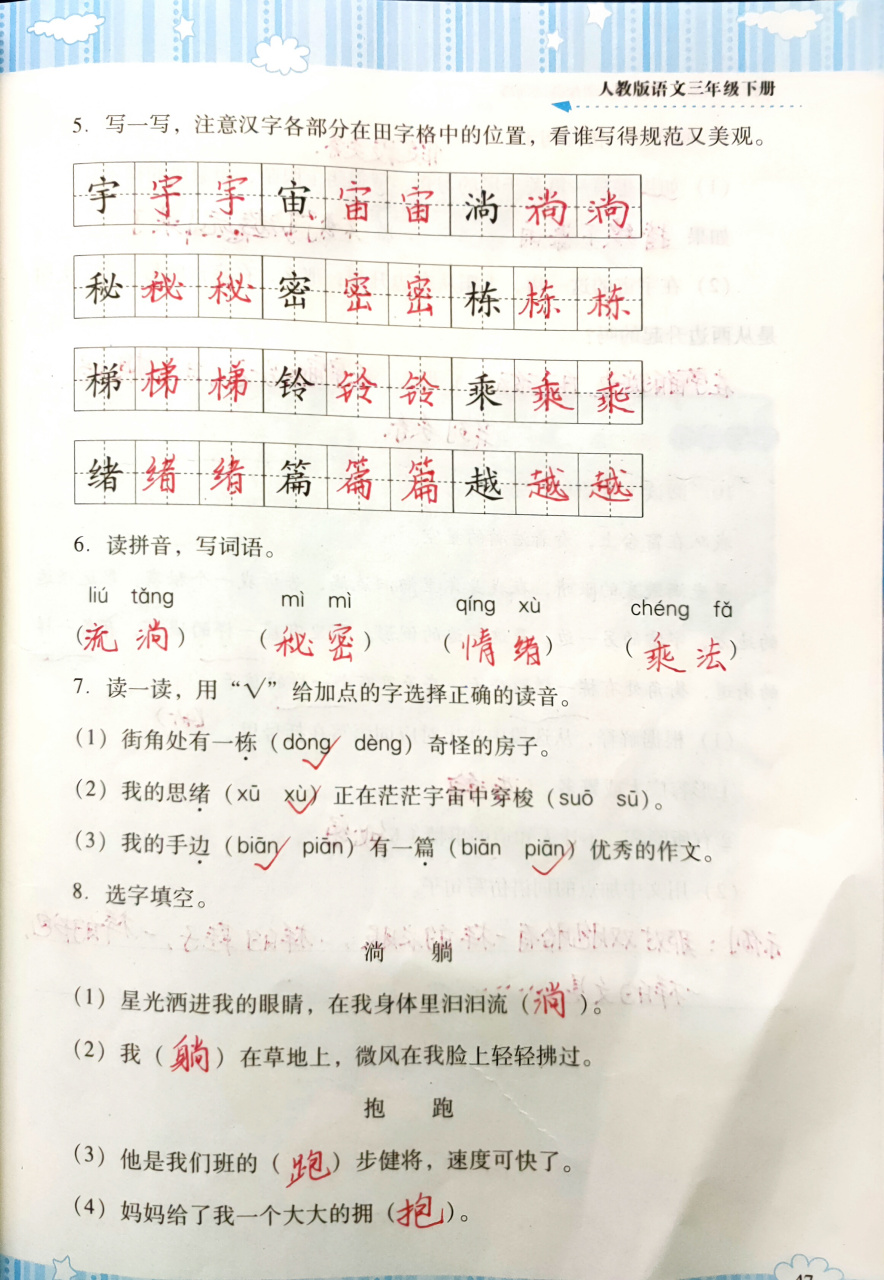 人教版语文三年级下册
5. 写一写，注意汉字各部分在田字格中的位置，看谁写得规范又美观。
宇 宇 宇 宙 宙 宙 淌 淌 淌
秘 秘 秘 密 密 密 栋 栋 栋
梯 梯 梯 铃 铃 铃 乘 乘 乘
绪 绪 绪 篇 篇 篇 越 越 越
6. 读拼音，写词语。
liú tǎng mì mì qíng xù chéng fǎ
（流淌） （秘密） （情绪） （乘法）
7. 读一读，用“√”给加点的字选择正确的读音。
（1）街角处有一栋（dòng√ dèng）奇怪的房子。
（2）我的思绪（xū xù√）正在茫茫宇宙中穿梭（suō sū）。
（3）我的手边（biān√ piān）有一篇（biān piān√）优秀的作文。
8. 选字填空。
淌 躺
（1）星光洒进我的眼睛，在我身体里汩汩流（淌）。
（2）我（躺）在草地上，微风在我脸上轻轻拂过。
抱 跑
（3）他是我们班的（跑）步健将，速度可快了。
（4）妈妈给了我一个大大的拥（抱）。
47